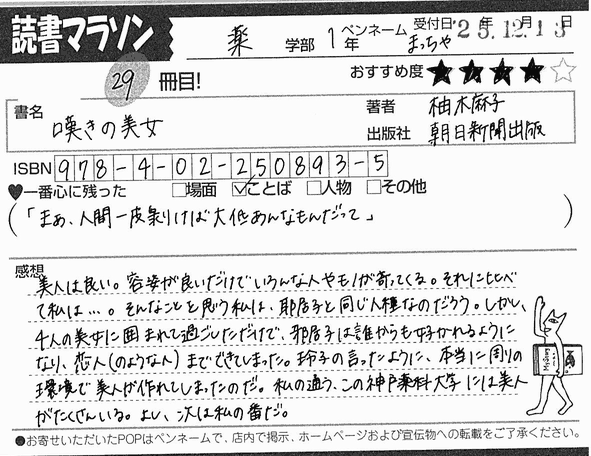 読書マラソン
薬 学部 1年 ペンネーム まっちゃ 受付日 '25年12月13日
29 冊目!
おすすめ度 ★★★★☆
書名 嘆きの美女
著者 柚木麻子
出版社 朝日新聞出版
ISBN 978-4-02-250893-5
♥一番心に残った □場面 ☑ことば □人物 □その他
(「まあ、人間一皮剝けば大低あんなもんだって」)
感想
美人は良い。容姿が良いだけでいろんな人やモノが寄ってくる。それに比べ
て私は…。そんなことを思う私は、耶居子と同じ人種なのだろう。しかし、
4人の美女に囲まれて過ごしただけで、耶居子は誰からも好かれるように
なり、恋人(のような人)までできてしまった。玲子の言ったように、本当に周りの
環境で美人が作れてしまったのだ。私の通う、この神戸薬科大学には美人
がたくさんいる。よし、次は私の番だ。
●お寄せいただいたPOPはペンネームで、店内で掲示、ホームページおよび宣伝物への転載をご了承ください。